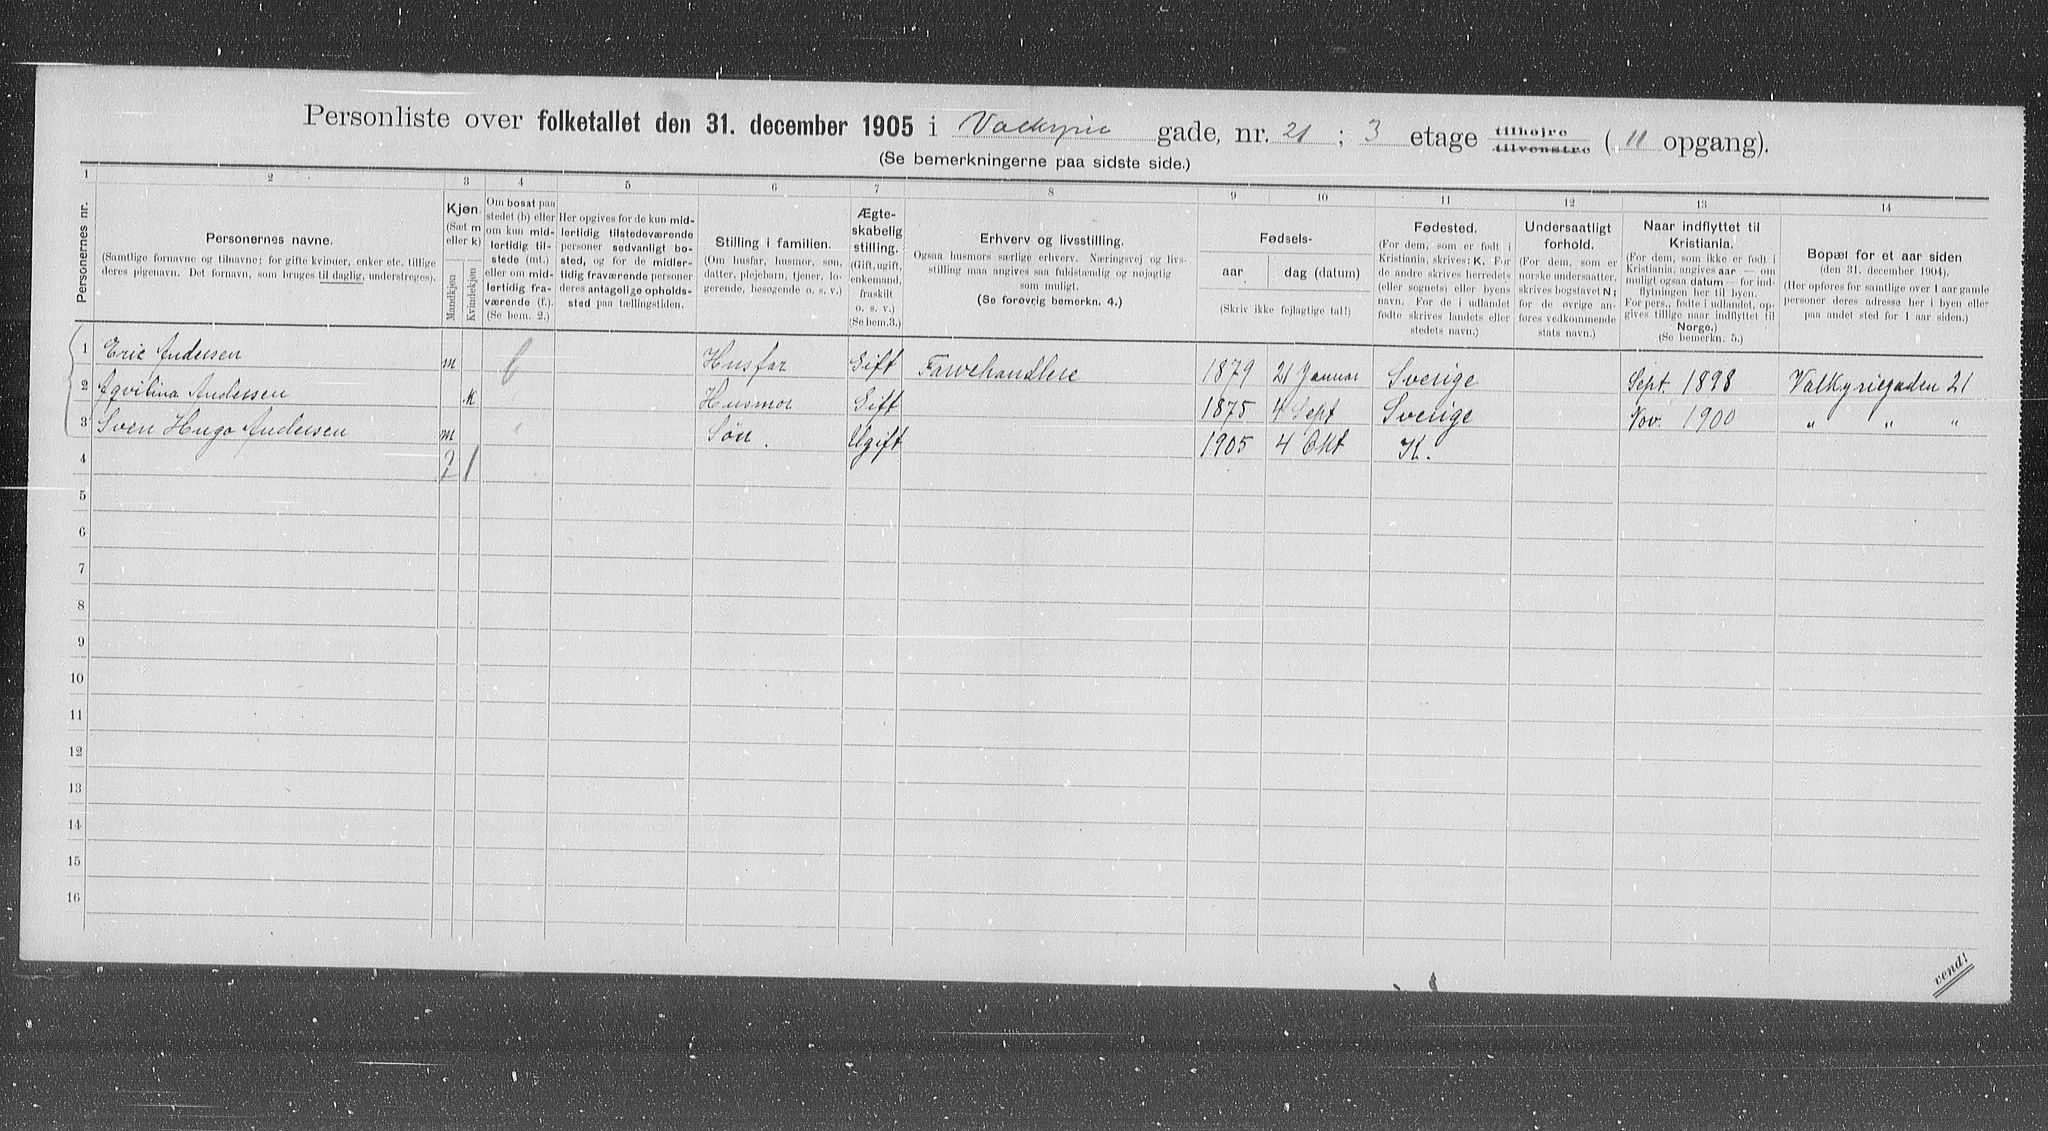 Personliste over folketallet den 31. december 1905 i Valkyrie gade, nr. 21 ; 3 etage tilhøjre tilvenstre ( 11 opgang).
(Se bemerkningerne paa sidste side.)
1 2 3 4 5 6 7 8 9 10 11 12 13 14
Personernes nr.
Personernes navne.
(Samtlige fornavne og tilnavne; for gifte kvinder, enker etc. tillige
deres pigenavn. Det fornavn, som bruges til daglig, understreges).
Kjøn.
(Sæt m
eller k)
Mandkjøn
Kvindekjøn
Om bosat paa
stedet (b) eller
om kun mid-
lertidig til-
stede (mt.)
eller om mid-
lertidig fra-
værende (f.).
(Se bem. 2.)
Her opgives for de kun mid-
lertidig tilstedeværende
personer sedvanligt bo-
sted, og for de midler-
tidig fraværende personer
deres antagelige opholds-
sted paa tællingstiden.
Stilling i familien.
(Om husfar, husmor, søn,
datter, plejebarn, tjener, lo-
gerende, besøgende o. s. v.)
Ægte-
skabelig
stilling.
(Gift, ugift,
enkemand,
fraskilt
o. s. v.)
(Se bem. 3.)
Erhverv og livsstilling.
Ogsaa husmors særlige erhverv. Næringsvej og livs-
stilling maa angives saa fuldstændig og nøjagtig
som muligt.
(Se forøvrig bemerkn. 4.)
Fødsels-
aar
dag (datum)
(Skriv ikke fejlagtige tal!)
Fødested.
(For dem, som er født i
Kristiania, skrives: K. For
de andre skrives herredets
(eller sognets) eller byens
navn. For de i udlandet
fødte skrives landets eller
stedets navn.)
Undersaatligt
forhold.
(For dem, som er
norske undersaatter,
skrives bogstavet N;
for de øvrige an-
føres vedkommende
stats navn.)
Naar indflyttet til
Kristiania.
(For dem, som ikke er født i
Kristiania, angives aar — om
muligt ogsaa datum — for ind-
flytningen her til byen.
For pers., fødte i udlandet, op-
gives tillige naar indflyttet til
Norge.)
(Se bemerkn. 5.)
Bopæl for et aar siden
(den 31. december 1904).
(Her opføres for samtlige over 1 aar gamle
personer deres adresse her i byen eller
paa andet sted for 1 aar siden.)
1 Eric Andersen m b Husfar Gift Farvehandlere 1879 21 Januar Sverige Sept. 1898 Valkyriegaden 21
2 Aqvilina Andersen k Husmor Gift 1875 4 Sept Sverige Nov. 1900 " " "
3 Sven Hugo Andersen m Søn. Ugift 1905 4 Okt K.
4 2 1
5
6
7
8
9
10
11
12
13
14
15
16
vend!